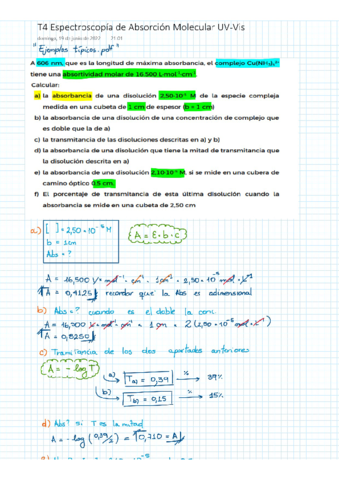 T4 Espectroscopía de Absorción Molecular UV-Vis
domingo, 19 de junio de 2022 21:01
"Ejemplos típicos.pdf"
A 606 nm, que es la longitud de máxima absorbancia, el complejo Cu(NH₃)₄²⁺
tiene una absortividad molar de 16.500 L·mol⁻¹·cm⁻¹.
Calcular:
a) la absorbancia de una disolución 2,50·10⁻⁵ M de la especie compleja
medida en una cubeta de 1 cm de espesor (b = 1 cm)
b) la absorbancia de una disolución de una concentración de complejo que
es doble que la de a)
c) la transmitancia de las disoluciones descritas en a) y b)
d) la absorbancia de una disolución que tiene la mitad de transmitancia que
la disolución descrita en a)
e) la absorbancia de una disolución 2,10·10⁻⁵ M, si se mide en una cubera de
camino óptico 0,5 cm.
f) El porcentaje de transmitancia de esta última disolución cuando la
absorbancia se mide en una cubeta de 2,50 cm
a) [ ] = 2,50·10⁻⁵ M
b = 1cm
Abs = ?
A = ε·b·c
A = 16,500 L·mol⁻¹·cm⁻¹ · 1cm · 2,50·10⁻⁵ mol·L⁻¹
A = 0,4125 recordar que la Abs es adimensional
b) Abs = ? cuando es el doble la conc.
A = 16,500 L·mol⁻¹·cm⁻¹ · 1cm · 2(2,50·10⁻⁵ mol·L⁻¹)
A = 0,8250
c) Trasmitancia de los dos apartados anteriores
A = -log T
a) T a) = 0,39 % 39%
b) T b) = 0,15 % 15%
d) Abs? si T es la mitad
A = -log (0,39/2) = 0,710 = A